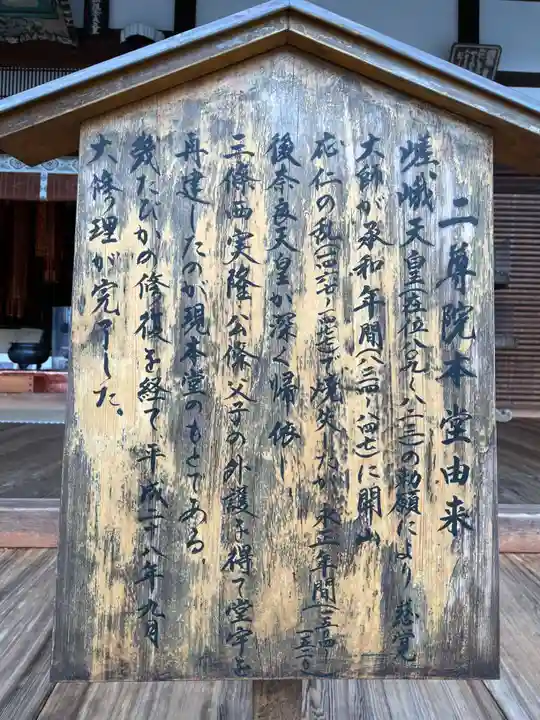 二尊院本堂由来
嵯峨天皇(在位八〇九〜八二三)の勅願により慈覚
大師が承和年間(八三四〜八四七)に開山
応仁の乱(一四六七〜一四七七)で焼失したが永正年間(一五〇四〜一五二〇)
後奈良天皇が深く帰依し
三條西実隆公條父子の外護を得て堂宇を
再建したのが現本堂のもとである。
幾たびかの修復を経て、平成二十八年九月
大修理が完了した。